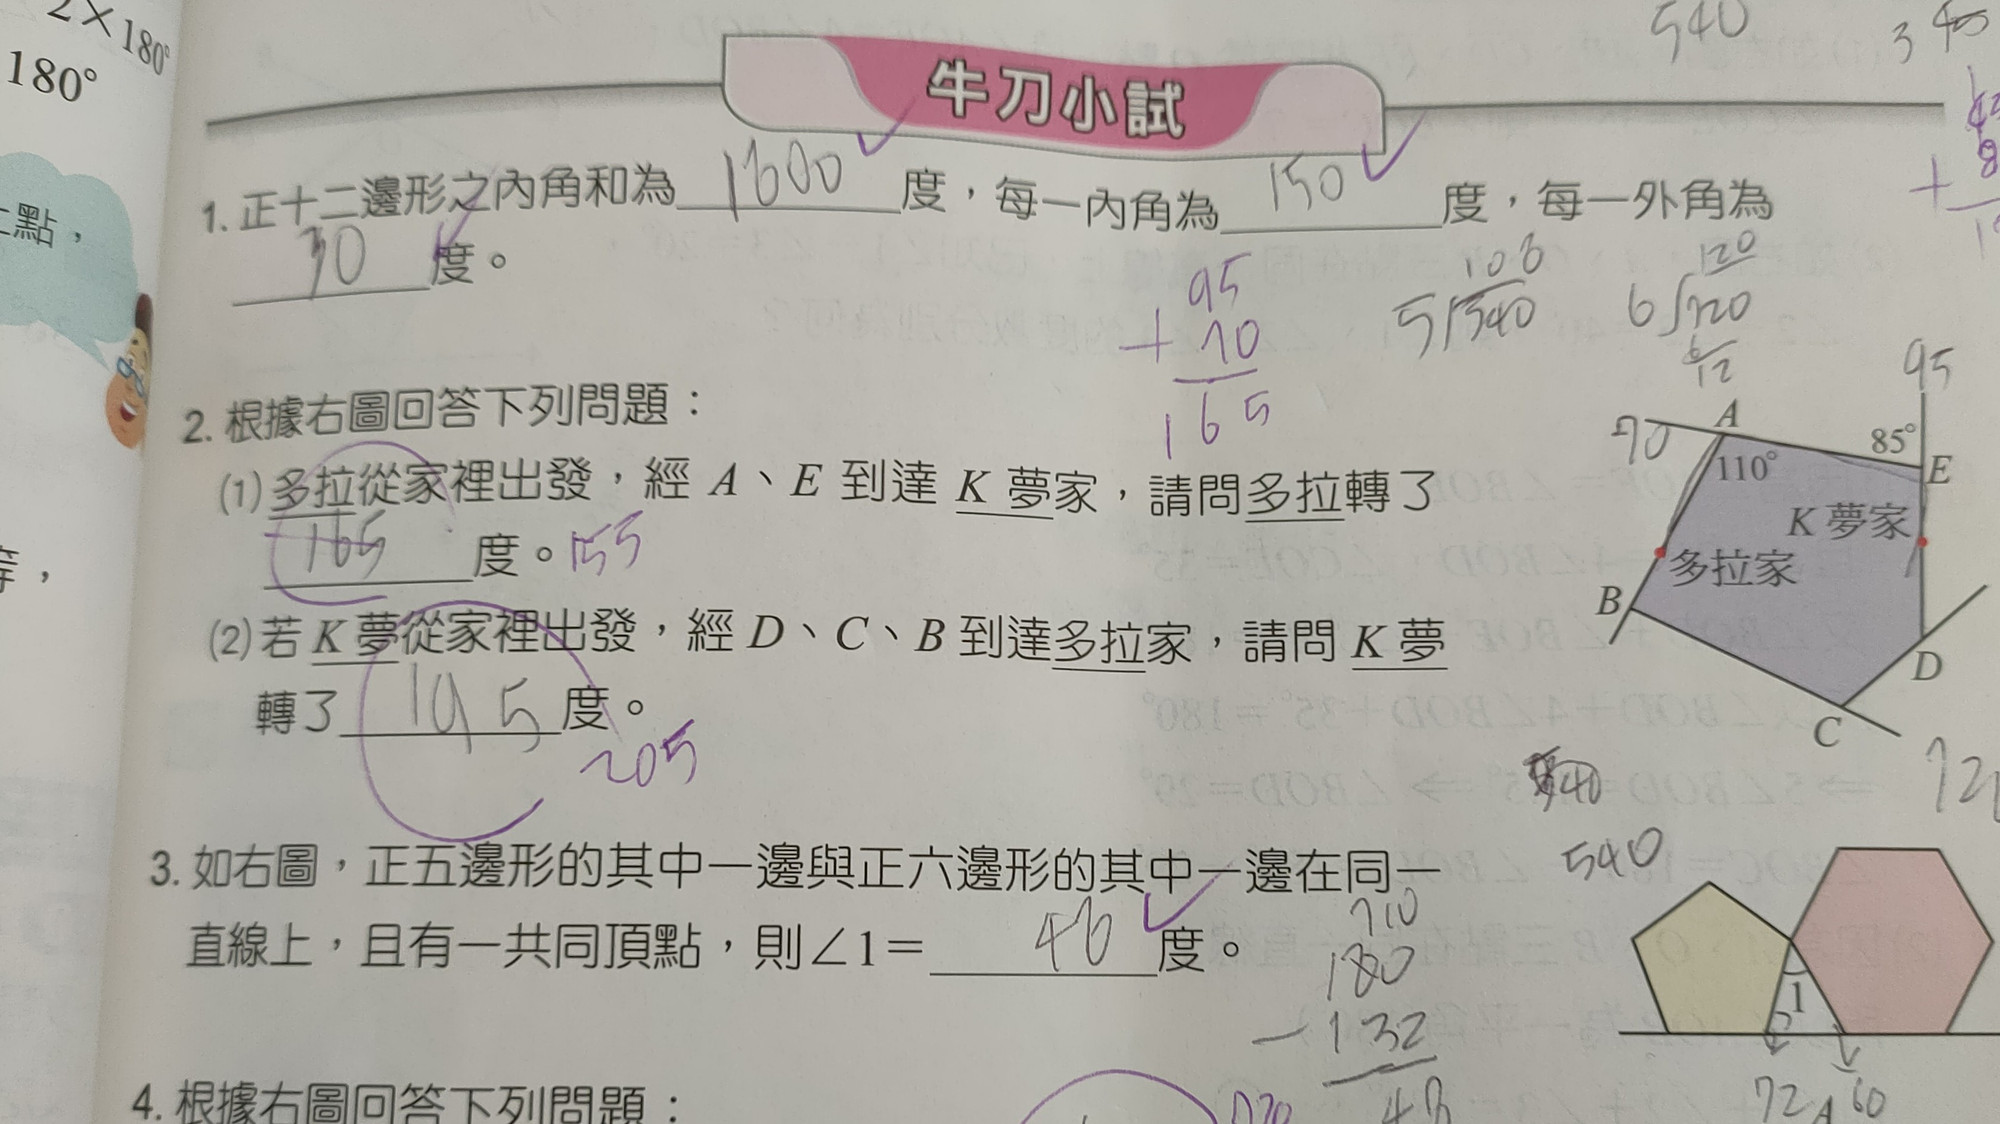 2×180°
180°
540
3
牛刀小試
1. 正十二邊形之內角和為 1800 度，每一內角為 150 度，每一外角為
30 度。
上點，
95
+ 70
165
108
5√540
120
6√720
6
12
95
2. 根據右圖回答下列問題：
(1) 多拉從家裡出發，經 A、E 到達 K 夢家，請問多拉轉了
165 度。155
(2) 若 K 夢從家裡出發，經 D、C、B 到達多拉家，請問 K 夢
轉了 195 度。
205
70
A
85°
110°
E
K 夢家
多拉家
B
D
C
540
3. 如右圖，正五邊形的其中一邊與正六邊形的其中一邊在同一
直線上，且有一共同頂點，則∠1＝ 48 度。
180
－132
48
1
72
60
4. 根據右圖回答下列問題：